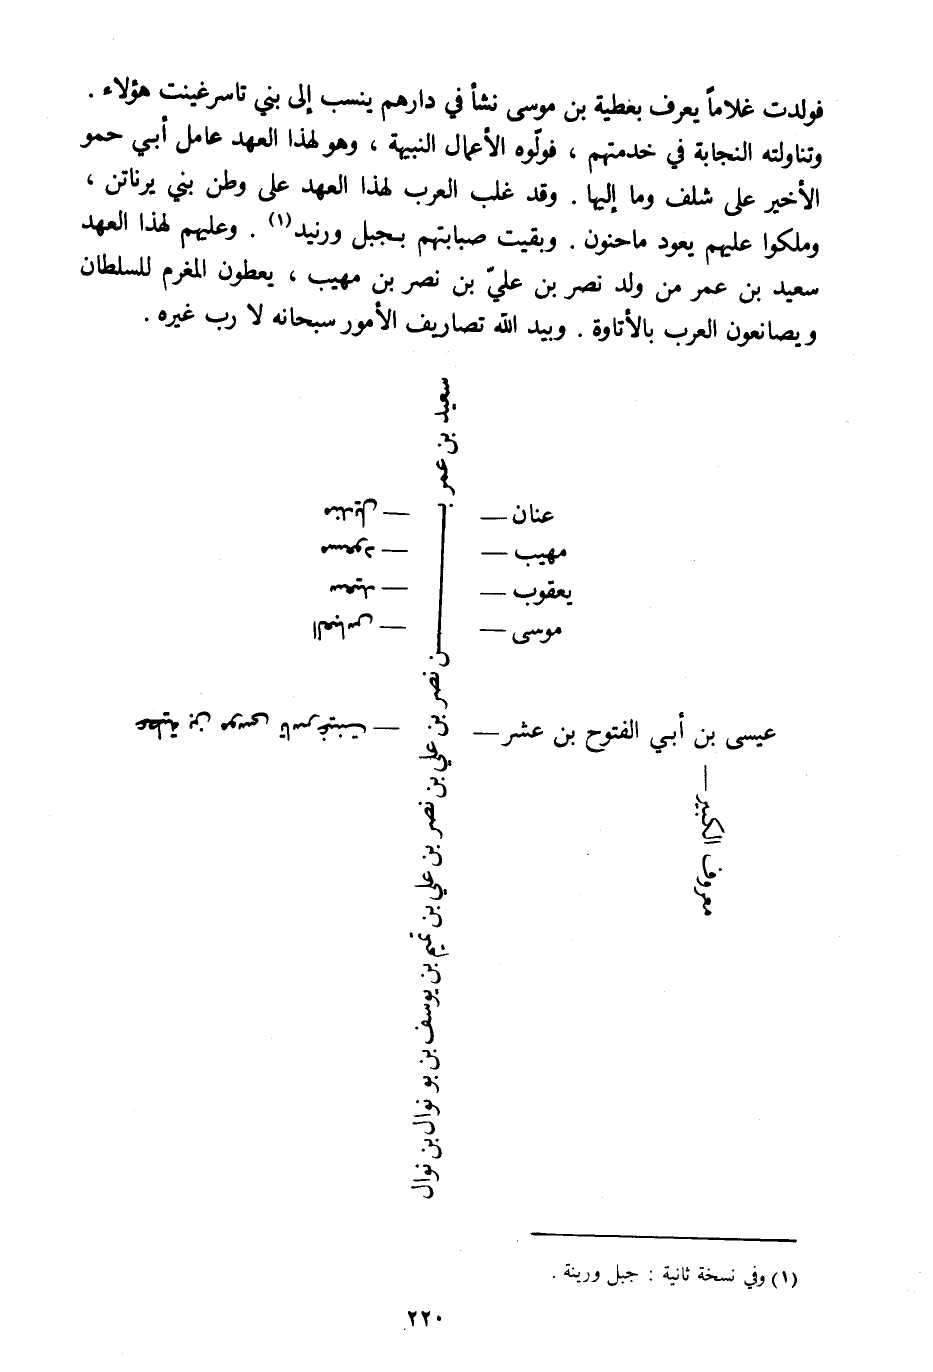 فولدت غلاماً يعرف بعطية بن موسى نشأ في دارهم ينسب إلى بني تاسرغينت هؤلاء .
وتناولته النجابة في خدمتهم ، فولّوه الأعمال النبيهة ، وهو لهذا العهد عامل أبي حمو
الأخير على شلف وما إليها . وقد غلب العرب لهذا العهد على وطن بني يرناتن ،
وملكوا عليهم يعود ماحنون . وبقيت صبابتهم بجبل ورنيد(١) . وعليهم لهذا العهد
سعيد بن عمر من ولد نصر بن عليّ بن نصر بن مهيب ، يعطون المغرم للسلطان
ويصانعون العرب بالأتاوة . وبيد الله تصاريف الأمور سبحانه لا رب غيره .
سعيد بن عمر بـــن نصر بن علي بن نصر بن علي بن تميم بن يوسف بن بو نوال بن نوال
عنان —
مهيب —
يعقوب —
موسى —
— منديل
— مسعود
— سعيد
— العباس
عيسى بن أبي الفتوح بن عشر —
— معروف الكبير
— عطية بن موسى تاسرغينت
(١) وفي نسخة ثانية : جبل ورينة .
٢٢٠